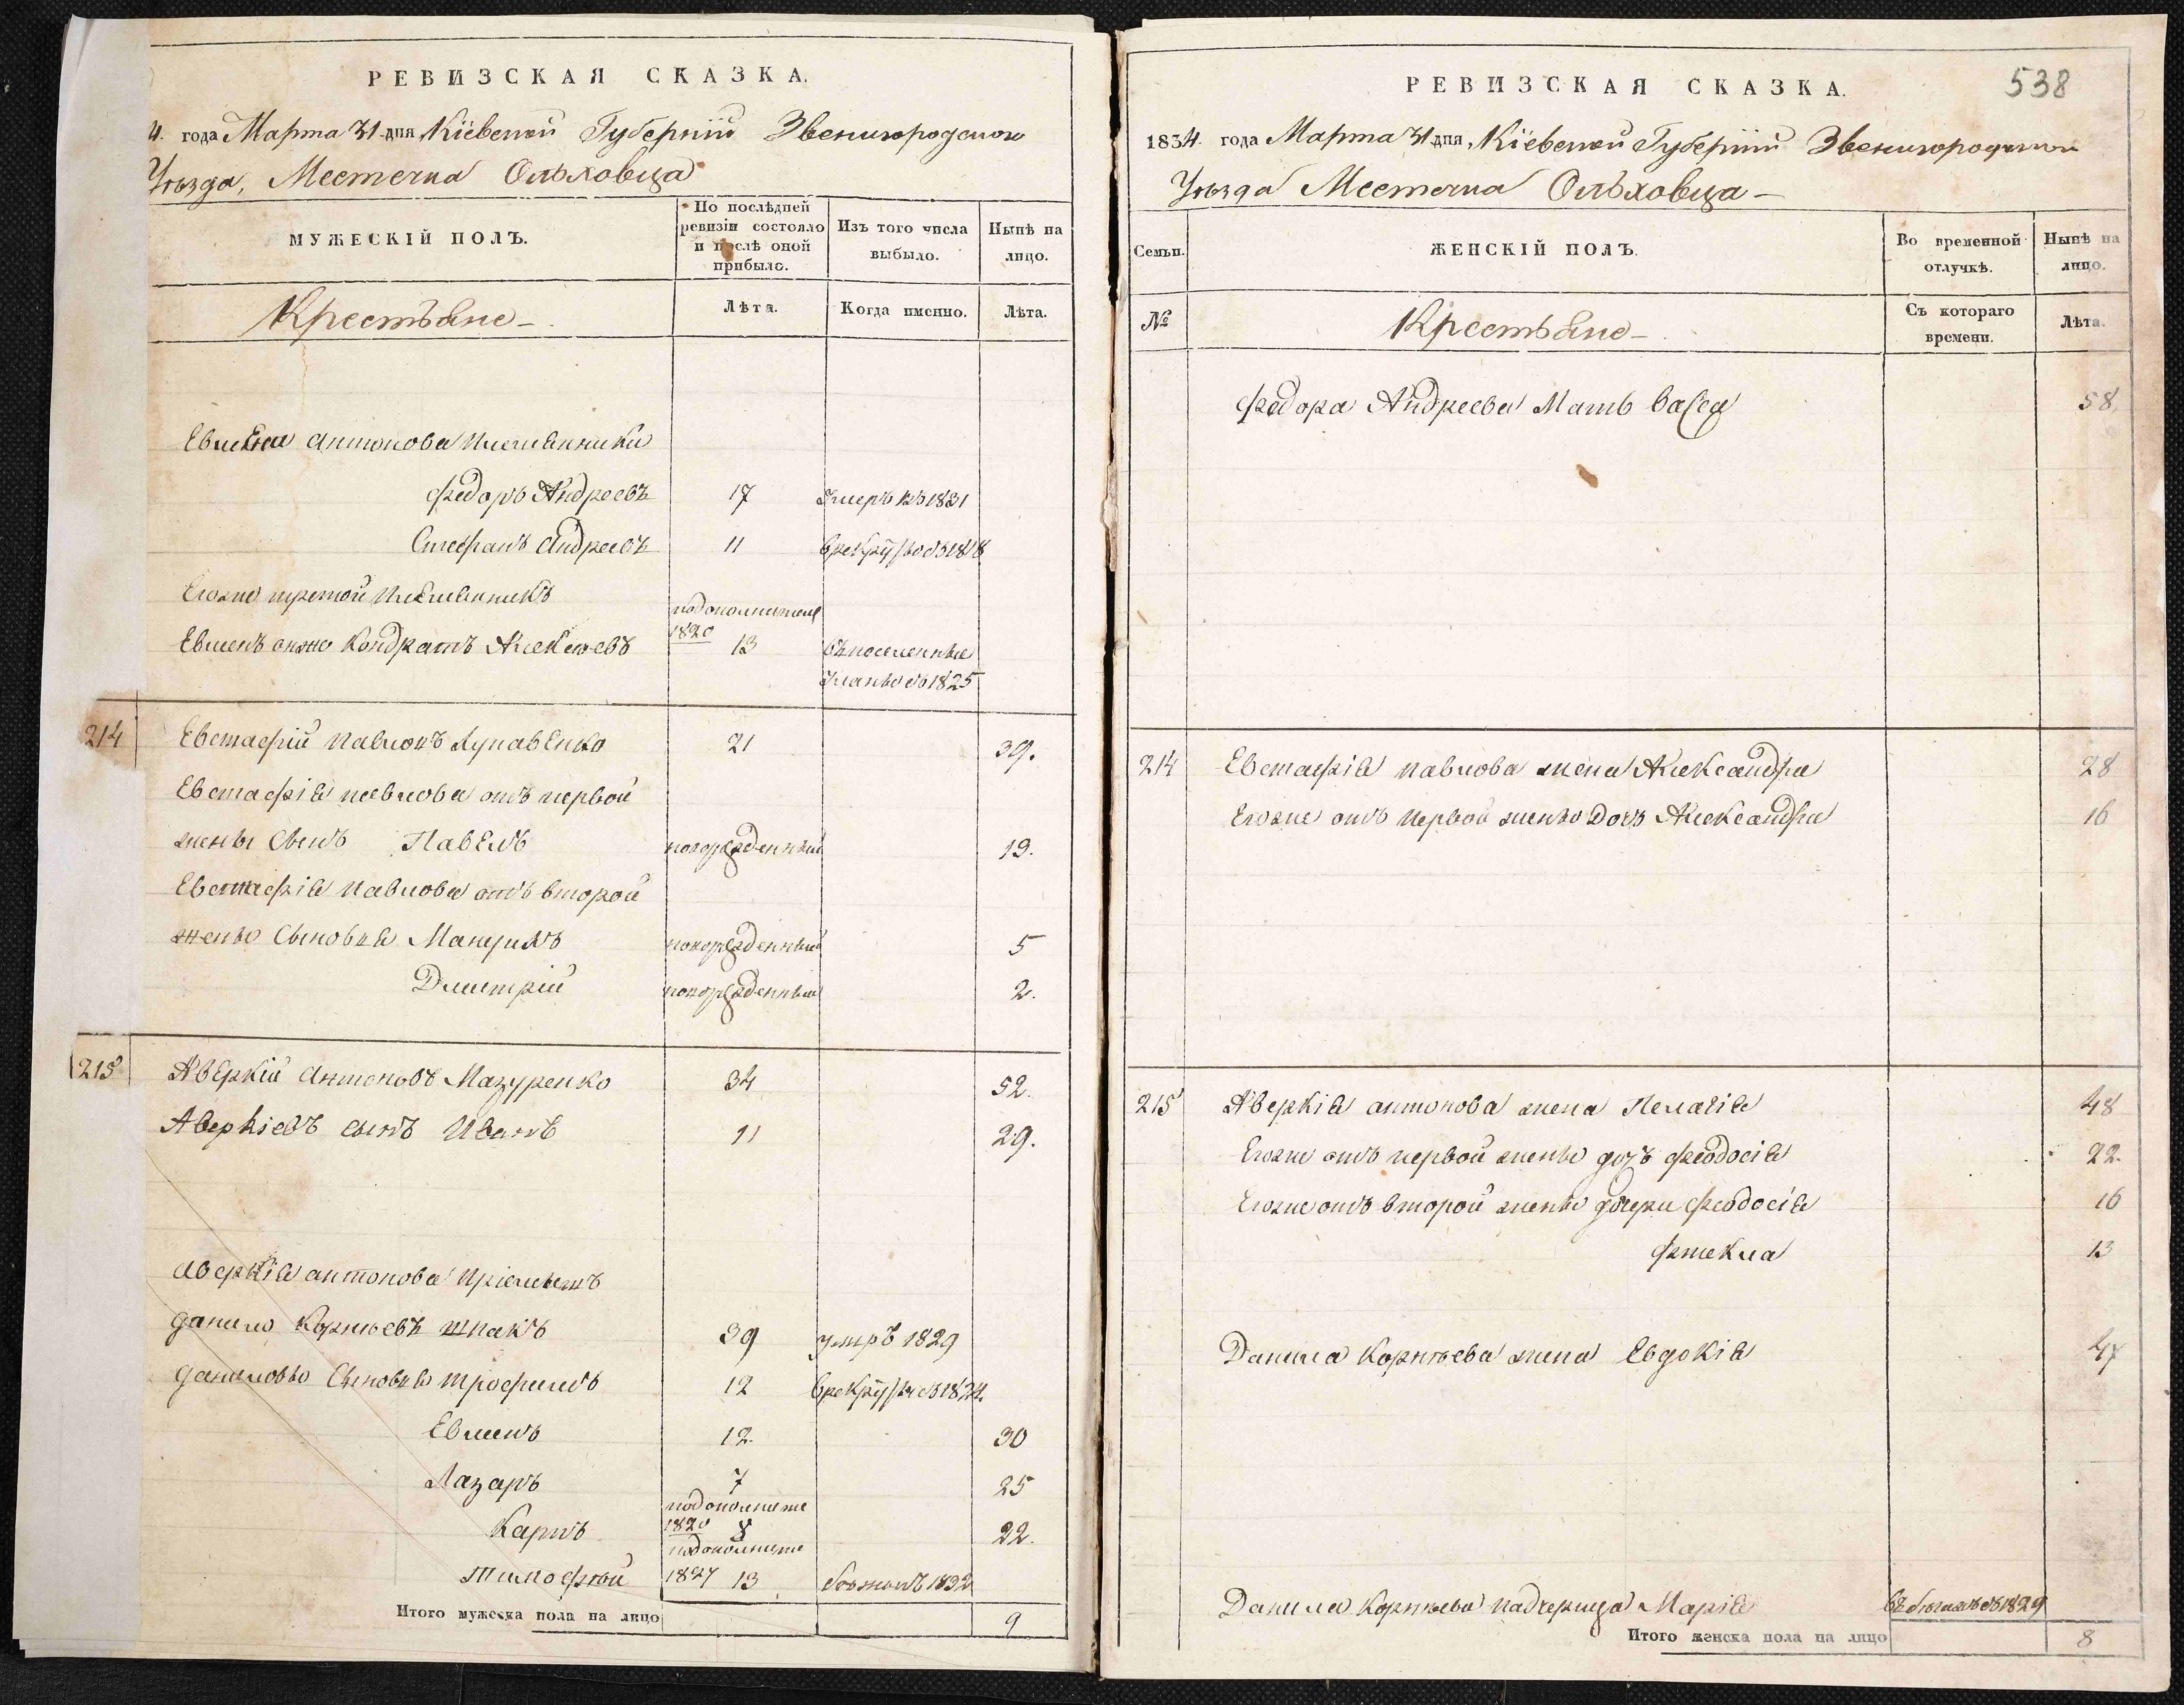 РЕВИЗСКАЯ СКАЗКА.
4. года Марта 31 дня Кіевской Губерніи Звенигородского
Уѣзда, Местечка Ольховца
МУЖЕСКІЙ ПОЛЪ.
По послѣдней ревизіи состояло и послѣ оной прибыло.
Изъ того числа выбыло.
Нынѣ на лицо.
Крестьяне
Лѣта.
Когда именно.
Лѣта.
Евмена Антонова Племянники
Федоръ Андреевъ 17 Умеръ въ 1831
Стефанъ Андреевъ 11 в рекруты въ 1818
Егоже третой Племянникъ
по дополнител
1820
Евменъ онже Кондратъ Алексеевъ 13 въ поселенные
Уланы въ 1825
214 Евстафій Павловъ Лупавенко 21 39.
Евстафія павлова отъ первой
жены Сынъ Павелъ новорожденный 19.
Евстафія Павлова отъ второй
жены Сыновья Мануилъ новорожденный 5
Дмитрій новорожденный 2.
215 Аверкій Антоновъ Мазуренко 34 52.
Аверкіевъ сынъ Иванъ 11 29.
Аверкія антонова Пріемышъ
Данило Корнѣевъ Шпакъ 39 умеръ 1829
Даниловы Сыновья Трофимъ 12 в рекруты въ 1824.
Евменъ 12 30
Лазаръ 7 25
по дополните
Карпъ 1820 8 22.
по дополните
Тимофѣй 1827 13 бѣжалъ 1832
Итого мужеска пола на лицо 9
538
РЕВИЗСКАЯ СКАЗКА.
1834. года Марта 31 дня, Кіевской Губерніи Звенигородского
Уѣзда Местечка Ольховца
Семьи.
ЖЕНСКІЙ ПОЛЪ.
Во временной отлучкѣ.
Нынѣ на лицо.
№
Крестьяне
Съ котораго времени.
Лѣта.
Федора Андреева Мать Васса 58
214 Евстафія павлова жена Александра 28
Егоже отъ Первой жены Дочь Александра 16
215 Аверкія антонова жена Пелагія 48
Егоже отъ первой жены дочь Феодосія 22.
Егоже отъ второй жены дочери Феодосія 16
Фтекла 13
Данила Корнѣева жена Евдокія 47
Данила Корнѣева Падчерица Марія въ бѣгахъ съ 1829
Итого женска пола на лицо 8